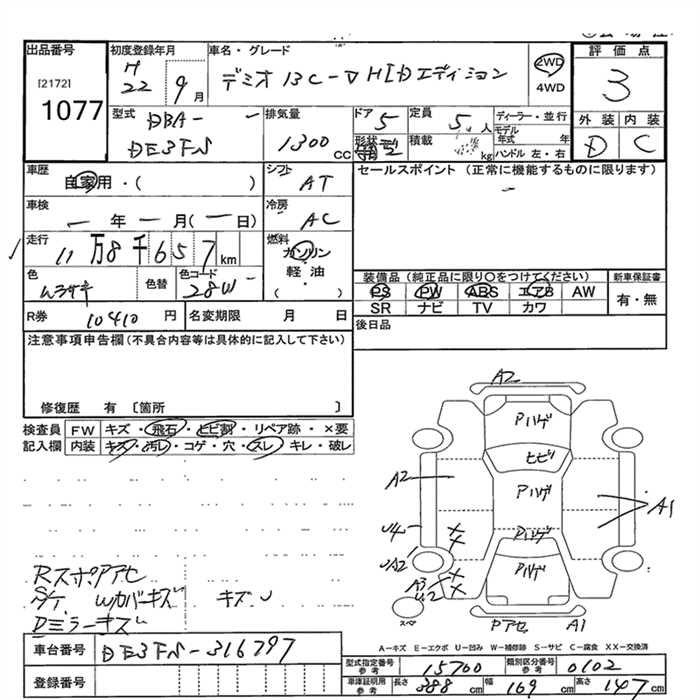 出品番号
[2172]
1077
初度登録年月
H
22 9 月
車名・グレード
デミオ 13C-V HIDエディション
2WD
4WD
評価点
3
外装 内装
D C
型式 DBA-
DE3FS
排気量
1300 cc
ドア 5
形状
定員 5 人
積載 kg
ディーラー・並行
モデル年式 年
ハンドル 左・右
車歴
自家用・( )
シフト
AT
セールスポイント (正常に機能するものに限ります)
車検
年 月( 日)
冷房
AC
走行
11万8千657km
燃料
ガソリン
軽・油
( )
色
ムラサキ
色替
色コード
28W
装備品 (純正品に限り○をつけてください)
PS PW ABS エアB AW
SR ナビ TV カワ
新車保証書
有・無
R券 10410 円
名変期限 月 日
後日品
注意事項申告欄(不具合内容等は具体的に記入して下さい)
修復歴 有〔箇所 〕
検査員 FW キズ・飛石・ヒビ割・リペア跡・×要
記入欄 内装 キズ・汚レ・コゲ・穴・スレ・キレ・破レ
A2
Pハゲ
ヒビ
A2
Pハゲ
A1
U4
Pハゲ
UA2
Pハゲ
A3
U2
スペア
Pアセ A1
RスポPアセ
S/T Wカバーキズ キズU
Dミラーキズ
A-キズ E-エクボ U-凹み W-補修跡 S-サビ C-腐食 XX-交換済
車台番号 DE3FS-316797
登録番号
型式指定番号 参考 15700
類別区分番号 参考 0102
車庫証明用 参考 長さ 388 cm 幅 169 cm 高さ 147 cm